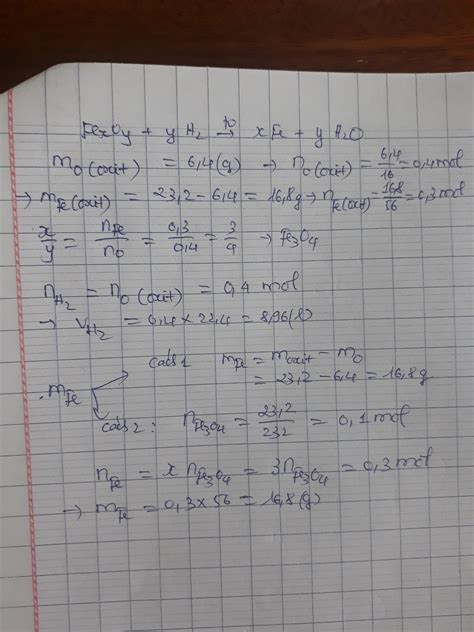 FexOy + yH2 →to xFe + yH2O
mO(oxit) = 6,4(g) → nO(oxit) = 6,4/16 = 0,4 mol
→ mFe(oxit) = 23,2 - 6,4 = 16,8g → nFe(oxit) = 16,8/56 = 0,3 mol
x/y = nFe/nO = 0,3/0,4 = 3/4 → Fe3O4
nH2 = nO(oxit) = 0,4 mol
→ VH2 = 0,4 × 22,4 = 8,96(l)
cách 1 mFe = moxit - mO
= 23,2 - 6,4 = 16,8g
mFe
cách 2: nFe3O4 = 23,2/232 = 0,1 mol
nFe = x nFe3O4 = 3nFe3O4 = 0,3 mol
→ mFe = 0,3 × 56 = 16,8(g)